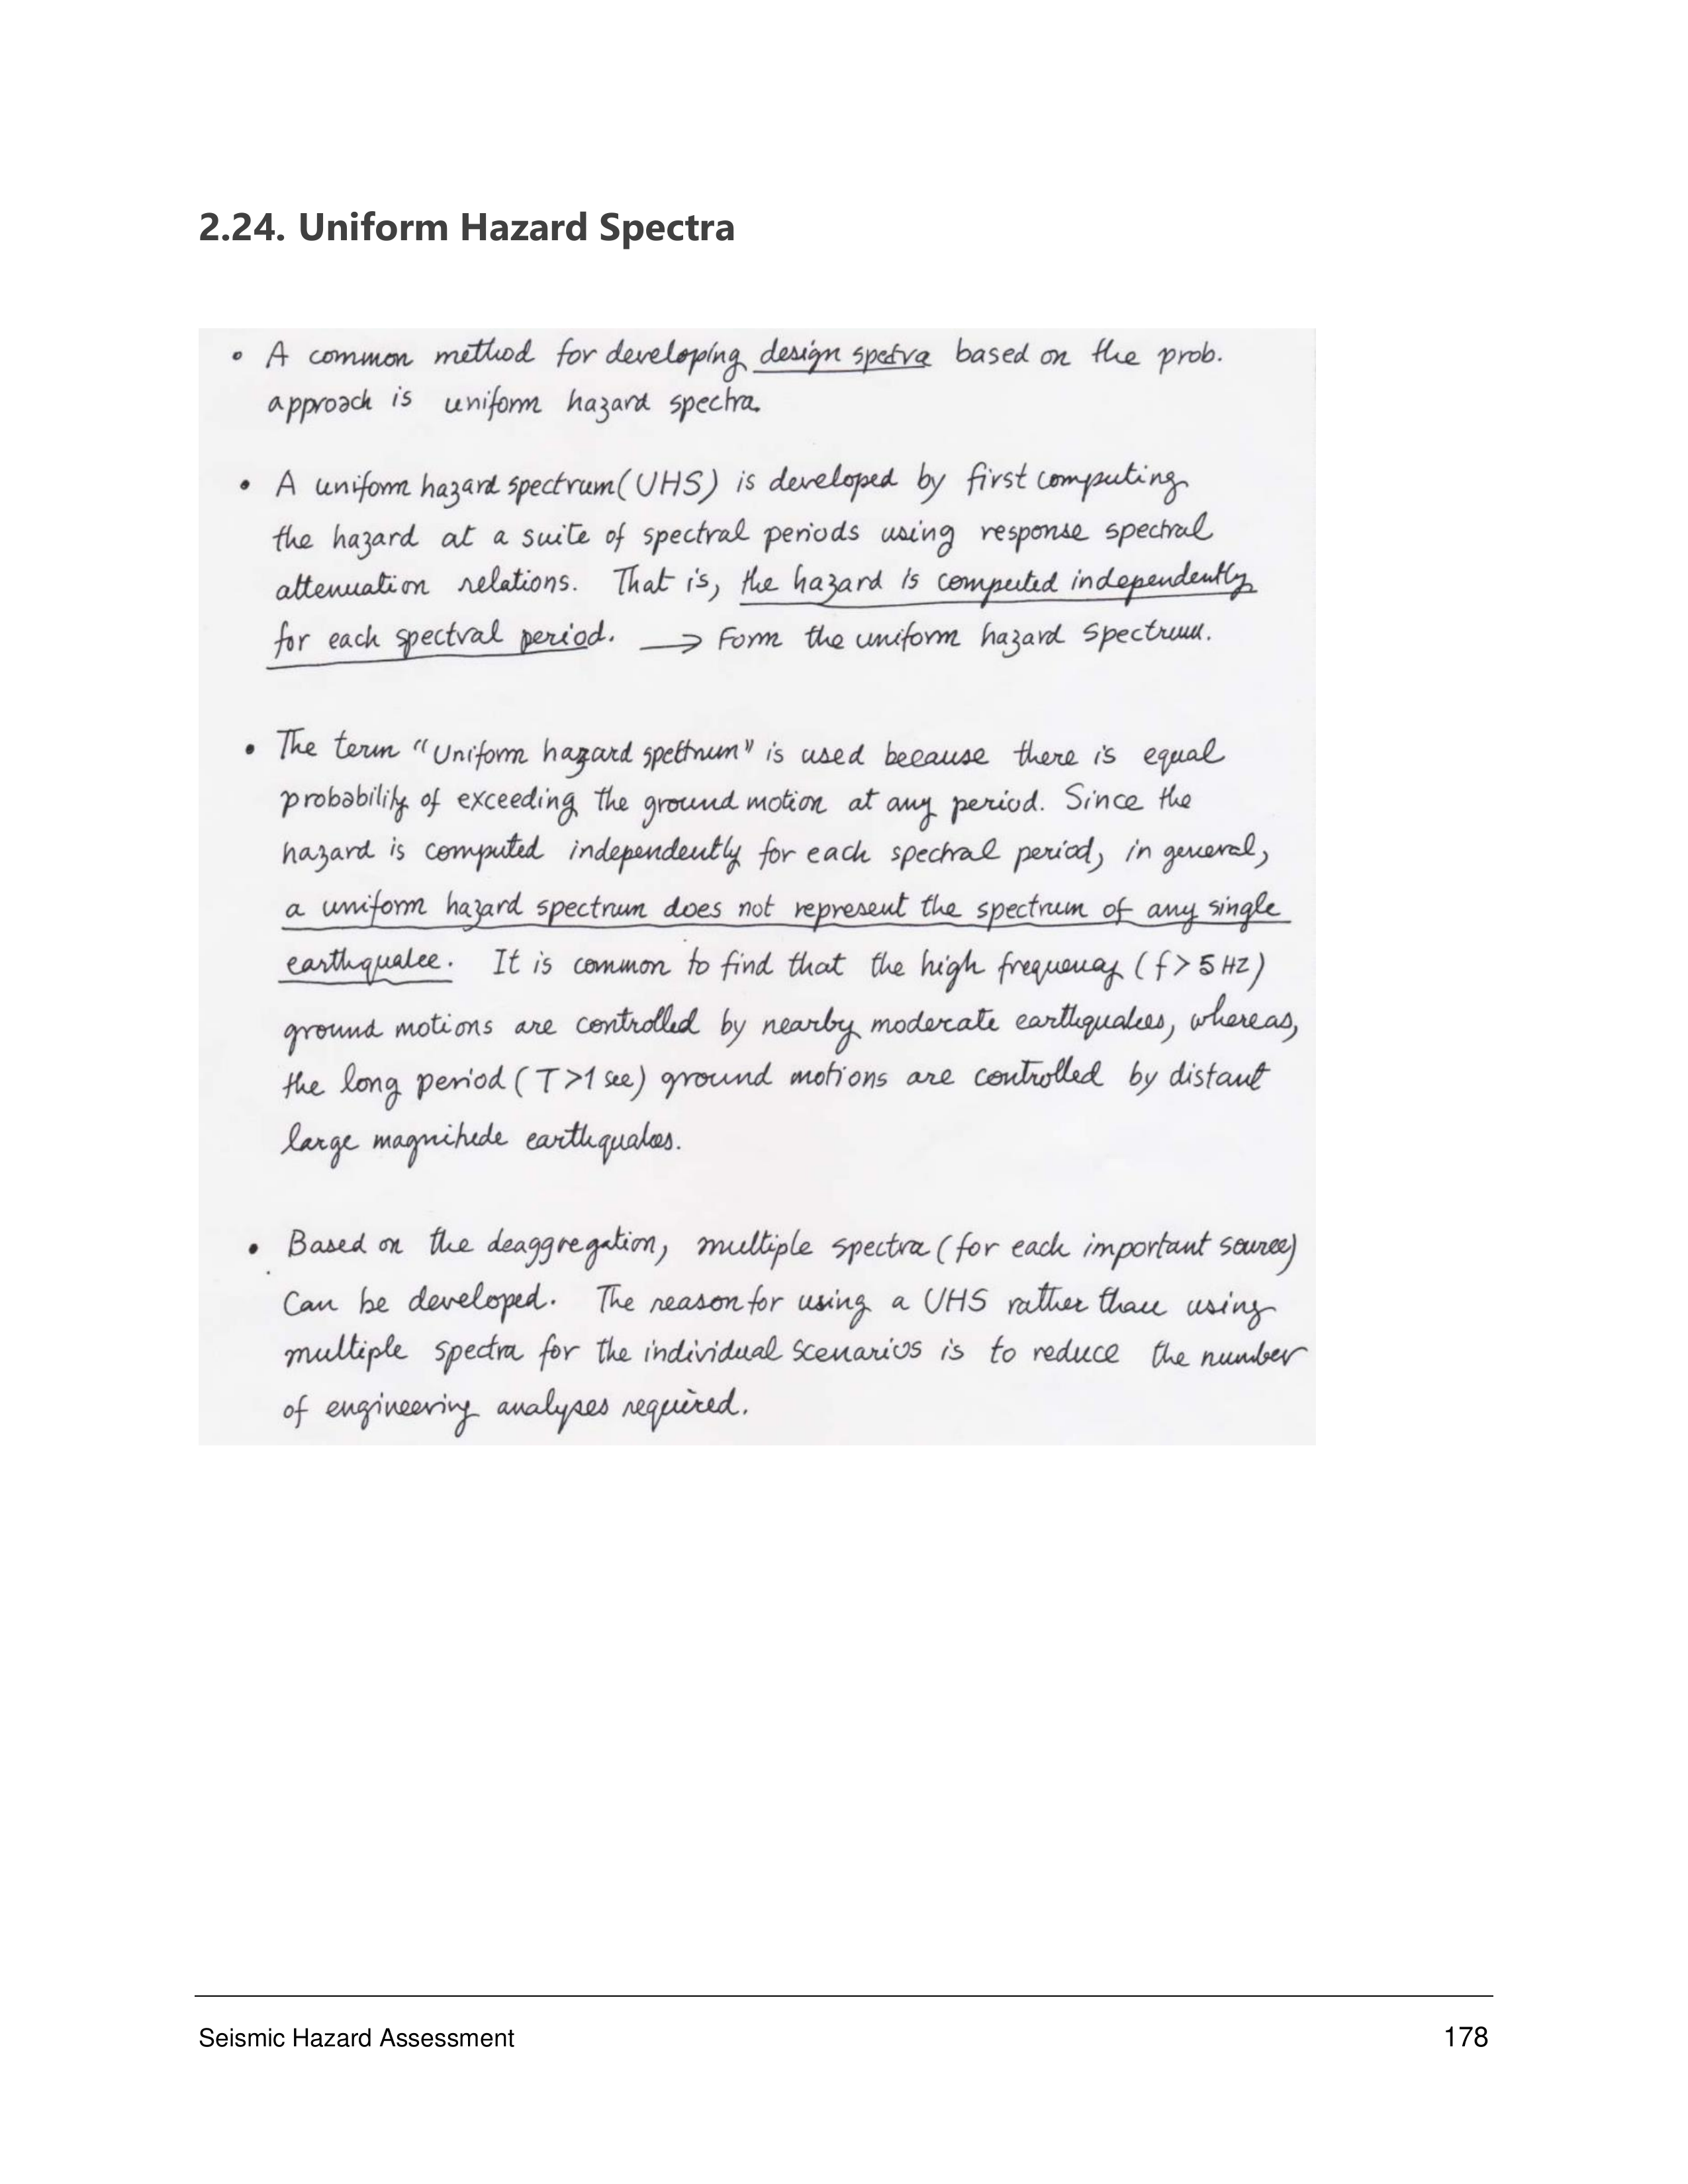 2.24. Uniform Hazard Spectra
• A common method for developing design spectra based on the prob.
approach is uniform hazard spectra.
• A uniform hazard spectrum (UHS) is developed by first computing
the hazard at a suite of spectral periods using response spectral
attenuation relations. That is, the hazard is computed independently
for each spectral period. → Form the uniform hazard spectrum.
• The term "Uniform hazard spectrum" is used because there is equal
probability of exceeding the ground motion at any period. Since the
hazard is computed independently for each spectral period, in general,
a uniform hazard spectrum does not represent the spectrum of any single
earthquake. It is common to find that the high frequency (f > 5 HZ)
ground motions are controlled by nearby moderate earthquakes, whereas,
the long period (T >1 sec) ground motions are controlled by distant
large magnitude earthquakes.
• Based on the deaggregation, multiple spectra (for each important source)
Can be developed. The reason for using a UHS rather than using
multiple spectra for the individual Scenarios is to reduce the number
of engineering analyses required.
Seismic Hazard Assessment 178